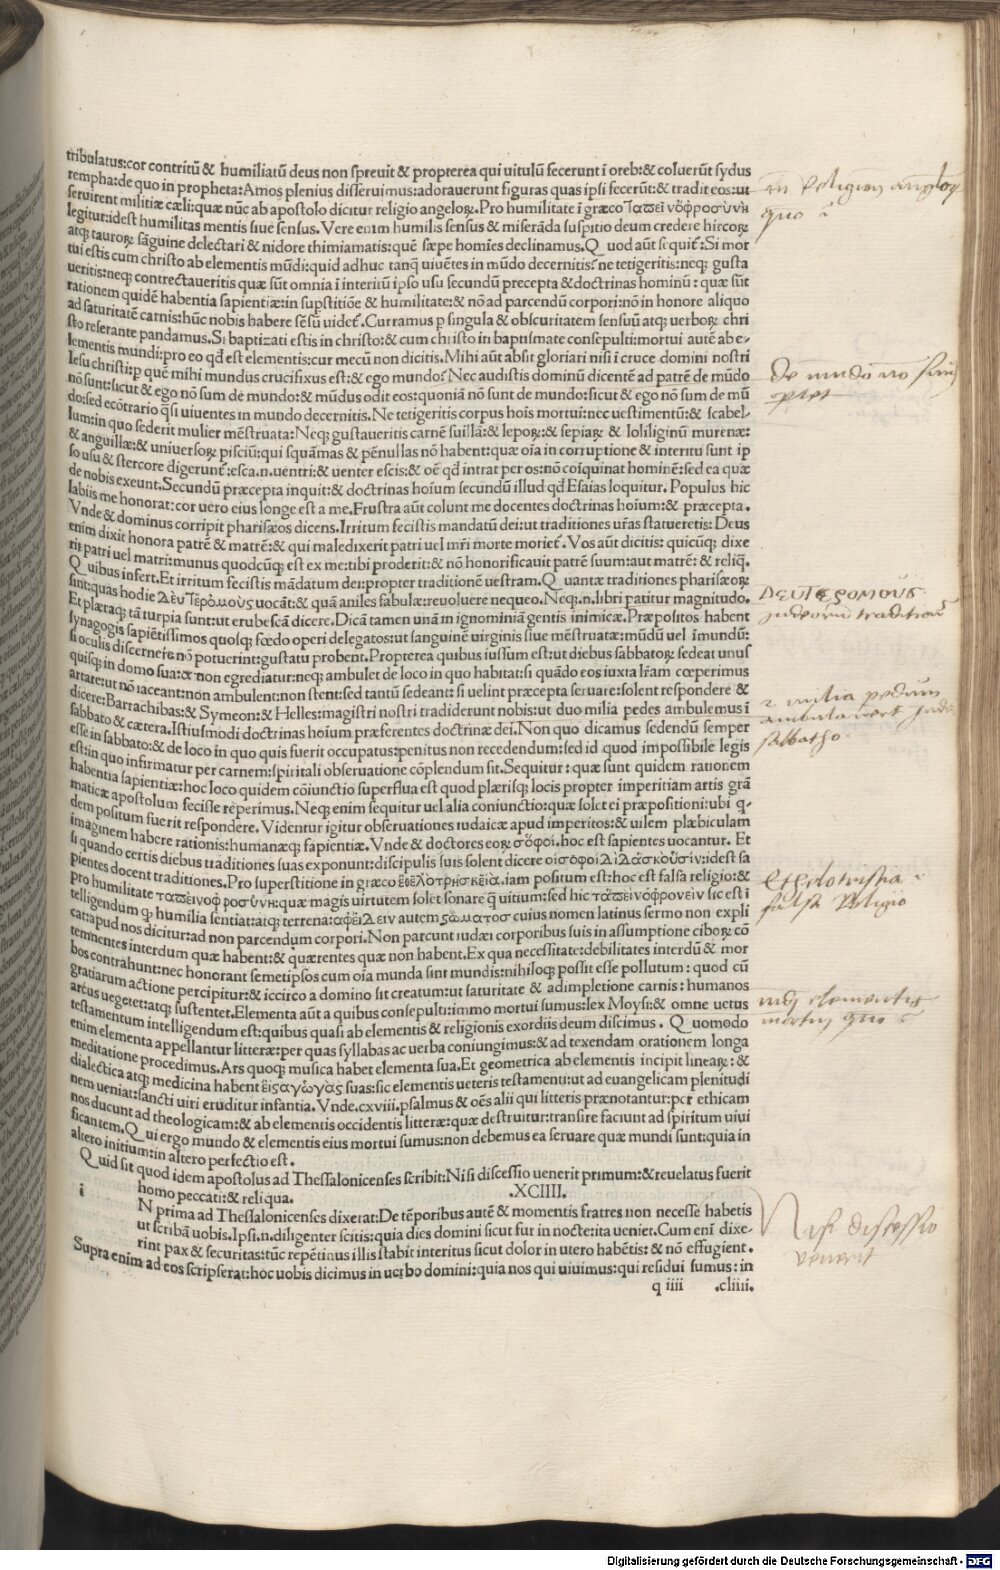 tribulatus:cor contritũ & humiliatũ deus non spreuit & propterea qui uitulũ fecerunt ĩ oreb:& coluerũt sydus
rempha:de quo in propheta:Amos plenius disseruimus:adorauerunt figuras quas ipsi fecerũt:& tradit eos:ut
seruirent militiæ cæli:quæ nũc ab apostolo dicitur religio angeloꝝ.Pro humilitate ĩ græco ταπεινοφροσύνη
legitur:idest humilitas mentis siue sensus. Vere enim humilis sensus & miserãda suspitio deum credere hircoꝝ
atqꝫ tauroꝝ sãguine delectari & nidore thimiamatis:quẽ sæpe homĩes declinamus.Q uod aũt seqt̃:Si mor
tui estis cum christo ab elementis mũdi:quid adhuc tanq̃ uiuẽtes in mũdo decernitis?ne tetigeritis:neqꝫ gusta
ueritis:neqꝫ contrectaueritis quæ sũt omnia ĩ interitũ ipso usu secundũ precepta & doctrinas hominũ: quæ sũt
rationem quidẽ habentia sapientiæ:in supstitiõe & humilitate:& nõ ad parcendũ corpori:nõ in honore aliquo
ad saturitatẽ carnis:hũc nobis habere sẽsũ uidet̃.Curramus p singula & obscuritatem sensuũ atqꝫ uerboꝝ chri
sto reserante pandamus.Si baptizati estis in christo:& cum christo in baptismate consepulti:mortui autẽ ab e-
lementis mundi:pro eo qđ est elementis:cur mecũ non dicitis.Mihi aũt absit gloriari nisi ĩ cruce domini nostri
Iesu christi:p quẽ mihi mundus crucifixus est:& ego mundo?Nec audistis dominũ dicentẽ ad patrẽ de mũdo
nõ sunt:sicut & ego nõ sum de mundo:& mũdus odit eos:quoniã nõ sunt de mundo:sicut & ego nõ sum de mũ
do:sed ecõtrario q̃si uiuentes in mundo decernitis.Ne tetigeritis corpus hois mortui:nec uestimentũ:& scabel-
lum:in quo sederit mulier mẽstruata:Neqꝫ gustaueritis carnẽ suillã:& leporꝝ:& sepiaꝝ & loliliginũ murenæ:
& anguillæ:& uniuersoꝝ pisciũ:qui squãmas & pẽnullas nõ habent:quæ oĩa in corruptione & interitu sunt ip
so usu & stercore digerunt̃:esca.n.uentri:& uenter escis:& oẽ qđ intrat per os:nõ coĩquinat hominẽ:sed ea quæ
de nobis exeunt.Secundũ præcepta inquit:& doctrinas hoĩum secundũ illud qđ Esaias loquitur. Populus hic
labiis me honorat:cor uero eius longe est a me.Frustra aũt colunt me docentes doctrinas hoĩum:& præcepta.
Vnde & dominus corripit pharisæos dicens.Irritum fecistis mandatũ dei:ut traditiones ur̃as statueretis: Deus
enim dixit honora patrẽ & matrẽ:& qui maledixerit patri uel mr̃i morte moriet̃. Vos aũt dicitis: quicũqꝫ dixe
rit patri uel matri:munus quodcũqꝫ est ex me:tibi proderit:& nõ honorificauit patrẽ suum:aut matrẽ: & reliq̃.
Q uibus infert.Et irritum fecistis mãdatum dei:propter traditionẽ uestram.Q uantæ traditiones pharisæoꝝ
sint:quas hodie Δευτερωμους uocãt:& quã aniles fabulæ:reuoluere nequeo.Neqꝫ.n.libri patitur magnitudo.
Et plæraqꝫ tã turpia sunt:ut erubescã dicere.Dicã tamen unã in ignominiã gentis inimicæ.Præpositos habent
synagogis sapiẽtissimos quosqꝫ fœdo operi delegatos:ut sanguinẽ uirginis siue mẽstruatæ:mũdũ uel ĩmundũ:
si oculis discernere nõ potuerint:gustatu probent.Propterea quibus iussum est:ut diebus sabbatoꝝ sedeat unus
quisqꝫ in domo sua:& non egrediatur:neqꝫ ambulet de loco in quo habitat:si quãdo eos iuxta lr̃am cœperimus
artare:ut nõ iaceant:non ambulent:non stent:sed tantũ sedeant:si uelint præcepta seruare:solent respondere &
dicere:Barrachibas:& Symeon:& Helles:magistri nostri tradiderunt nobis:ut duo milia pedes ambulemus ĩ
sabbato & cætera.Istiusmodi doctrinas hoĩum præferentes doctrinæ dei.Non quo dicamus sedendũ semper
esse in sabbato:& de loco in quo quis fuerit occupatus:penitus non recedendum:sed id quod impossibile legis
est:in quo infirmatur per carnem:spiritali obseruatione cõplendum sit.Sequitur: quæ sunt quidem rationem
habentia sapientiæ:hoc loco quidem coiunctio superflua est quod plærisqꝫ locis propter imperitiam artis grã
maticæ apostolum fecisse reperimus.Neqꝫ enim sequitur uel alia coniunctio:quæ solet ei præpositioni:ubi q-
dem positum fuerit respondere. Videntur igitur obseruationes iudaicæ apud imperitos:& uilem plæbiculam
imaginem habere rationis:humanæqꝫ sapientiæ. Vnde & doctores eoꝝ σοφοί.hoc est sapientes uocantur. Et
si quando certis diebus traditiones suas exponunt:discipulis suis solent dicere οισοφοι Διδασκουσιν:idest sa
pientes docent traditiones.Pro superstitione in græco εθελοτρησκεια.iam positum est:hoc est falsa religio:&
pro humilitate ταπεινοφροσύνη:quæ magis uirtutem solet sonare q̃ uitium:sed hic ταπεινοφρονειν sic est ĩ
telligendum qꝫ humilia sentiat:atqꝫ terrena:αφειΔειν autem σωματος cuius nomen latinus sermo non expli
cat:apud nos dicitur:ad non parcendum corpori.Non parcunt iudæi corporibus suis in assumptione ciboꝝ:cõ
temnentes interdum quæ habent:& quærentes quæ non habent.Ex qua necessitate:debilitates interdũ & mor
bos contrahunt:nec honorant semetipsos cum oĩa munda sint mundis:nihiloqꝫ possit esse pollutum: quod cũ
gratiarum actione percipitur:& iccirco a domino sit creatum:ut saturitate & adimpletione carnis: humanos
artus uegetet:atqꝫ sustentet.Elementa aũt a quibus consepulti:immo mortui sumus:lex Moysi:& omne uetus
testamentum intelligendum est:quibus quasi ab elementis & religionis exordiis deum discimus . Q uomodo
enim elementa appellantur litteræ:per quas syllabas ac uerba coniungimus:& ad texendam orationem longa
meditatione procedimus.Ars quoqꝫ musica habet elementa sua.Et geometrica ab elementis incipit lineaꝝ: &
dialectica atqꝫ medicina habent εισαγωγας suas:sic elementis ueteris testamenti:ut ad euangelicam plenitudi
nem ueniat:sancti uiri eruditur infantia. Vnde.cxviii.psalmus & oẽs alii qui litteris prænotantur:per ethicam
nos ducunt ad theologicam:& ab elementis occidentis litteræ:quæ destruitur:transire faciunt ad spiritum uiui
ficantem.Q ui ergo mundo & elementis eius mortui sumus:non debemus ea seruare quæ mundi sunt:quia in
altero initium:in altero perfectio est.
Q uid sit quod idem apostolus ad Thessalonicenses scribit:Nisi discessio uenerit primum:& reuelatus fuerit
homo peccati:& reliqua. .XCIIII.
i N prima ad Thessalonicenses dixerat:De tẽporibus autẽ & momentis fratres non necesse habetis
ut scribã uobis.Ipsi.n.diligenter scitis:quia dies domini sicut fur in nocte:ita ueniet.Cum enĩ dixe-
rint pax & securitas:tũc repẽtinus illis stabit interitus sicut dolor in utero habẽtis: & nõ effugient.
Supra enim ad eos scripserat:hoc uobis dicimus in uerbo domini:quia nos qui uiuimus:qui residui sumus: in
q iiii .cliiii.
in religion angeloꝝ
quo
de mũdo nõ sunt
Δευτερομους
iudeorũ traditiones
2 milia pedum
ambularent
sabbatho
Ethelotriskia
falsa Religio
elementis
mortui quo
Nisi discessio
venerit
Digitalisierung gefördert durch die Deutsche Forschungsgemeinschaft - DFG